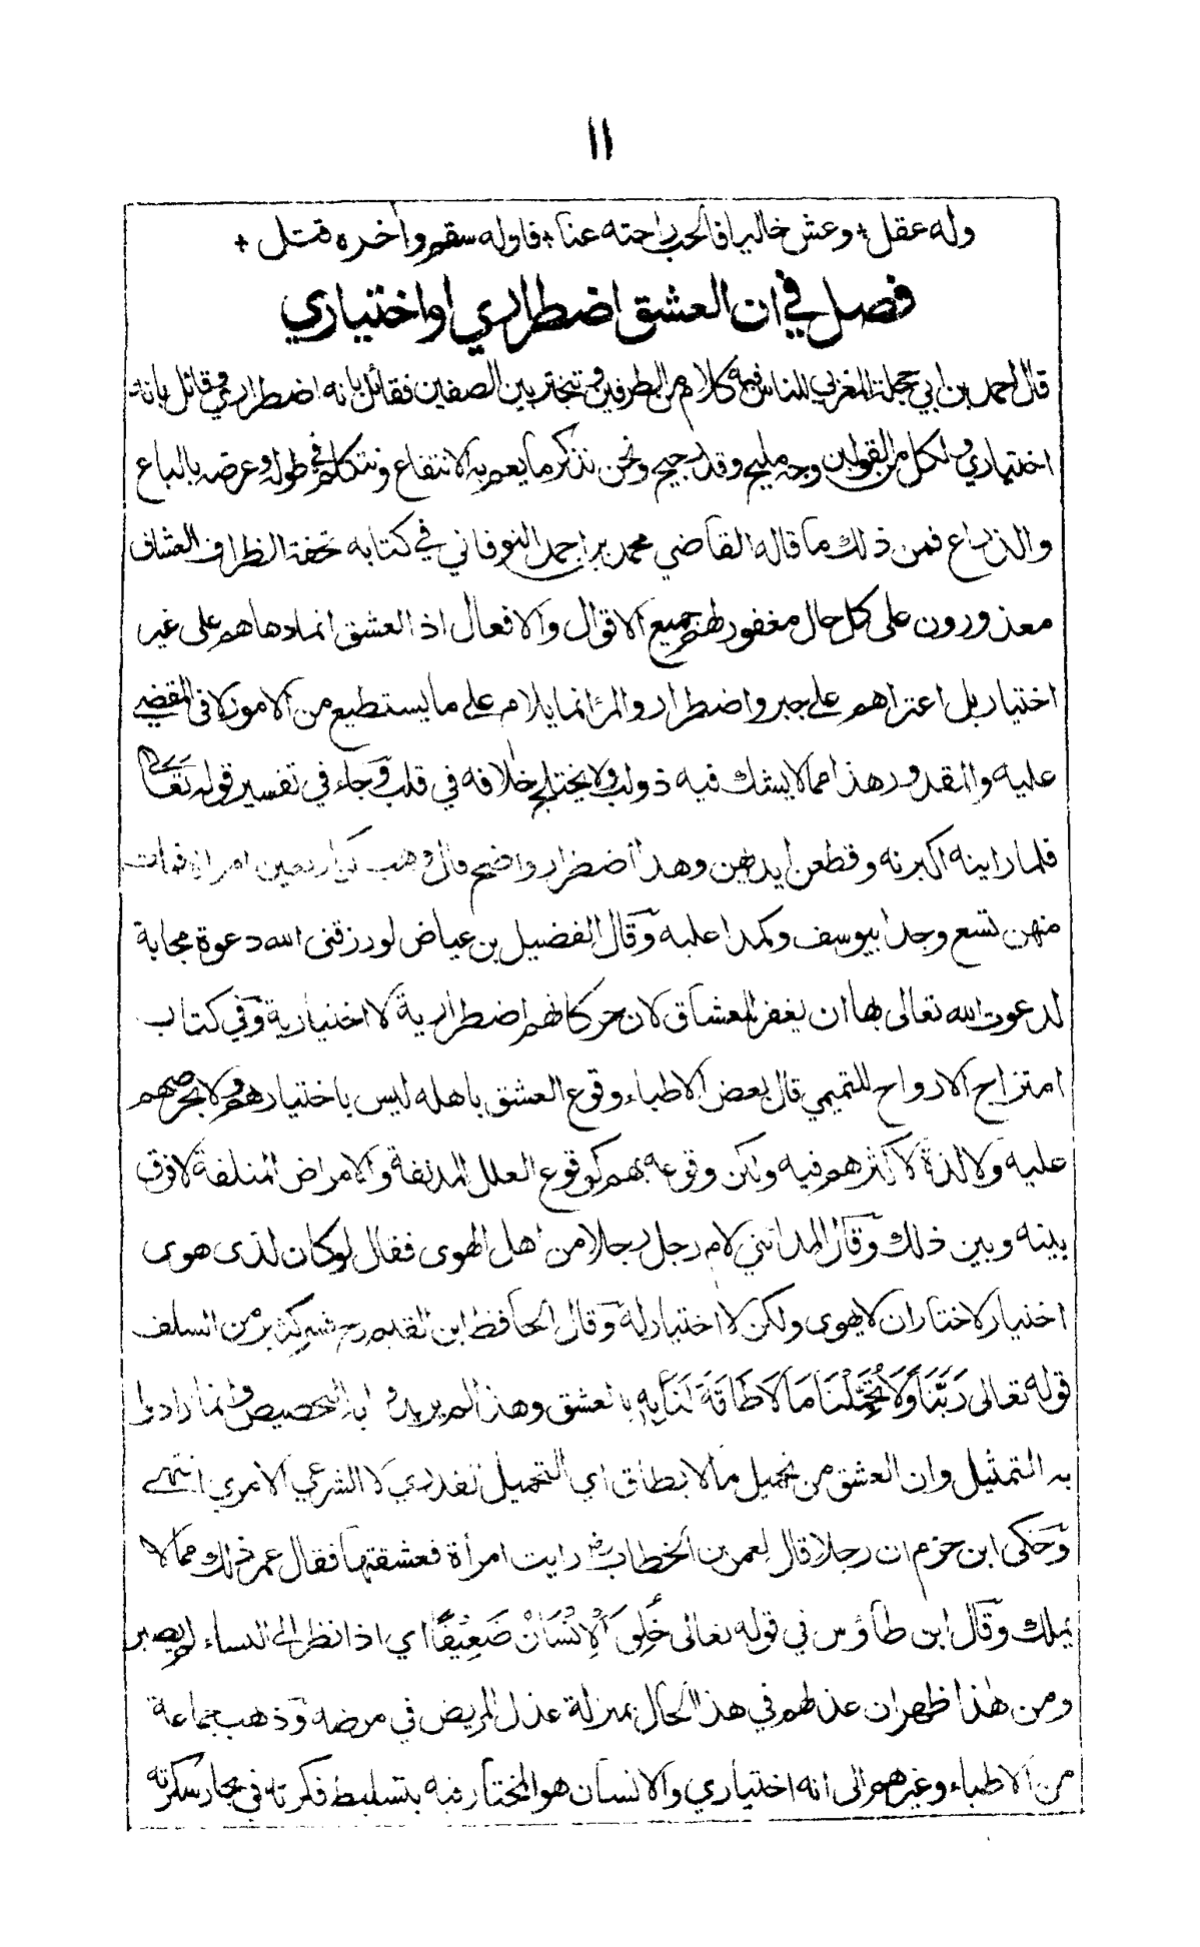 ١١
وله عقل + وعش خاليا فالحب راحته عنا + فاوله سقم وآخره قتل +
فصل في ان العشق اضطراري او اختياري
قال احمد بن ابي حجلة المغربي للناس فيه كلام من الطرفين وتبختر بين الصفين فقائل بانه اضطراري وقائل بانه
اختياري ولكل من القولين وجه مليح وقد رجيح ونحن نذكر ما يعم به الانتفاع ونتكلم في طوله وعرضه بالباع
والذراع فمن ذلك ما قاله القاضي محمد بن احمد النوقاتي في كتابه تحفة الظراف العشاق
معذورون على كل حال مغفور لهم جميع الاقوال والافعال اذ العشق انما دهاهم على غير
اختيار بل اعتراهم على جبر واضطرار والمرء انما يلام على ما يستطيع من الامور لا في المقضي
عليه والمقدور هذا مما لا يشك فيه ذو لب ولا يختلج خلافه في قلب وجاء في تفسير قوله تعالى
فلما راينه اكبرنه وقطعن ايديهن وهذا اضطرار واضح قال وهب كن اربعين امراة فمات
منهن تسع وجدا بيوسف وكمدا عليه وقال الفضيل بن عياض لو رزقنى الله دعوة مجابة
لدعوت الله تعالى بها ان يغفر للعشاق لان حركاتهم اضطرارية لا اختيارية وفي كتاب
امتزاج الارواح للتميمي قال بعض الاطباء وقوع العشق باهله ليس باختيارهم ولا بحرصهم
عليه ولا لذة لاكثرهم فيه ولكن وقوعه بهم كوقوع العلل المدنفة والامراض المتلفة لا فرق
بينه وبين ذلك وقال المدائني لام رجل رجلا من اهل الهوى فقال لو كان لذى هوى
اختيار لاختار ان لا يهوى ولكن لا اختيار له وقال الحافظ ابن القيم رح فسر كثير من السلف
قوله تعالى رَبَّنَا وَلَا تُحَمِّلْنَا مَا لَا طَاقَةَ لَنَا بِهِ بالعشق وهذا لم يريدوا به التخصيص وانما ارادوا
به التمثيل وان العشق من تحميل ما لا يطاق اي التحميل تقديري لا الشرعي الامري انتهى
وحكى ابن حزم ان رجلا قال لعمر بن الخطاب رض رايت امرأة فعشقتها فقال عمر ذلك مما لا
يملك وقال ابن طاؤس في قوله تعالى خُلِقَ الْإِنْسَانُ ضَعِيفًا اي اذا نظر الى النساء لم يصبر
ومن هذا ظهر ان عذلهم في هذا الحال بمنزلة عذل المريض في مرضه وذهب جماعة
من الاطباء وغيرهم الى انه اختياري والانسان هو المختار فيه بتسليط فكرته في بحار سكرته